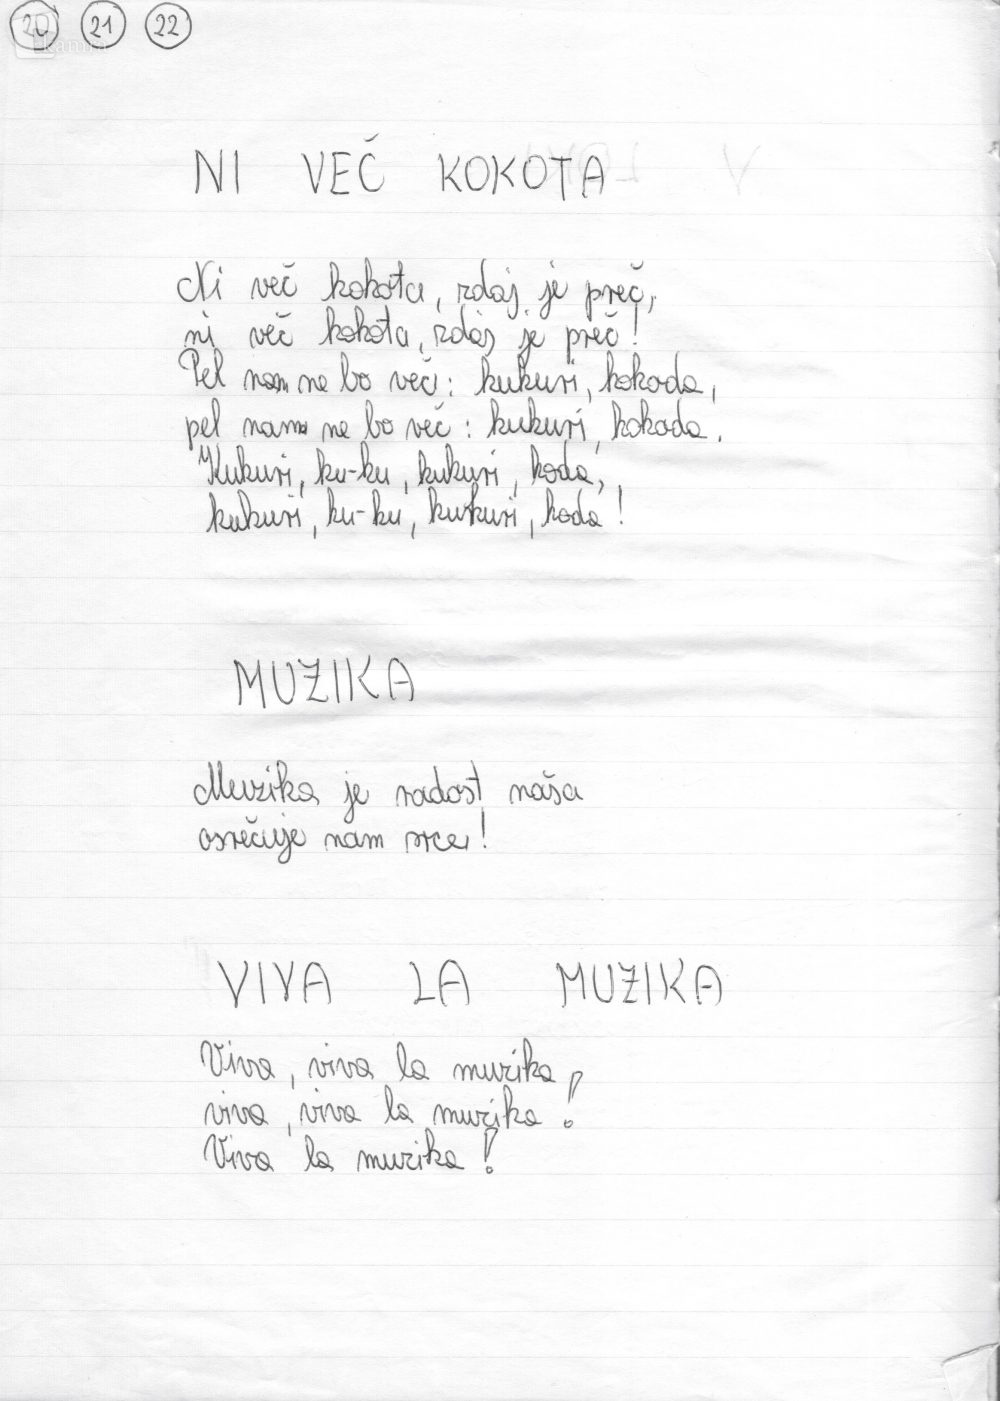 20 21 22
NI VEČ KOKOTA
Ni več kokota, zdaj je preč,
ni več kokota, zdaj je preč!
Pel nam ne bo več: kukuri, kokoda,
pel nam ne bo več: kukuri, kokoda.
Kukuri, ku-ku, kukuri, koda,
kukuri, ku-ku, kukuri, koda!
MUZIKA
Muzika je radost naša
osrečuje nam srce!
VIVA LA MUZIKA
Viva, viva la muzika,
viva, viva la muzika!
Viva la muzika!